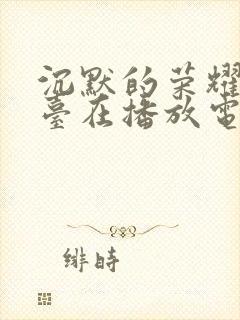 沉默的荣耀
臺在播放電
緋時